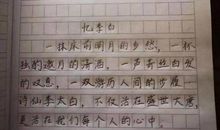 忆李白
一抹床前明月的乡愁，一杯
独酌邀月的清酒，一声奔丝白发
的叹息，一双游历人间的步履
诗仙李太白，不仅活在盛世大唐，
更活在我们每个人的心中。